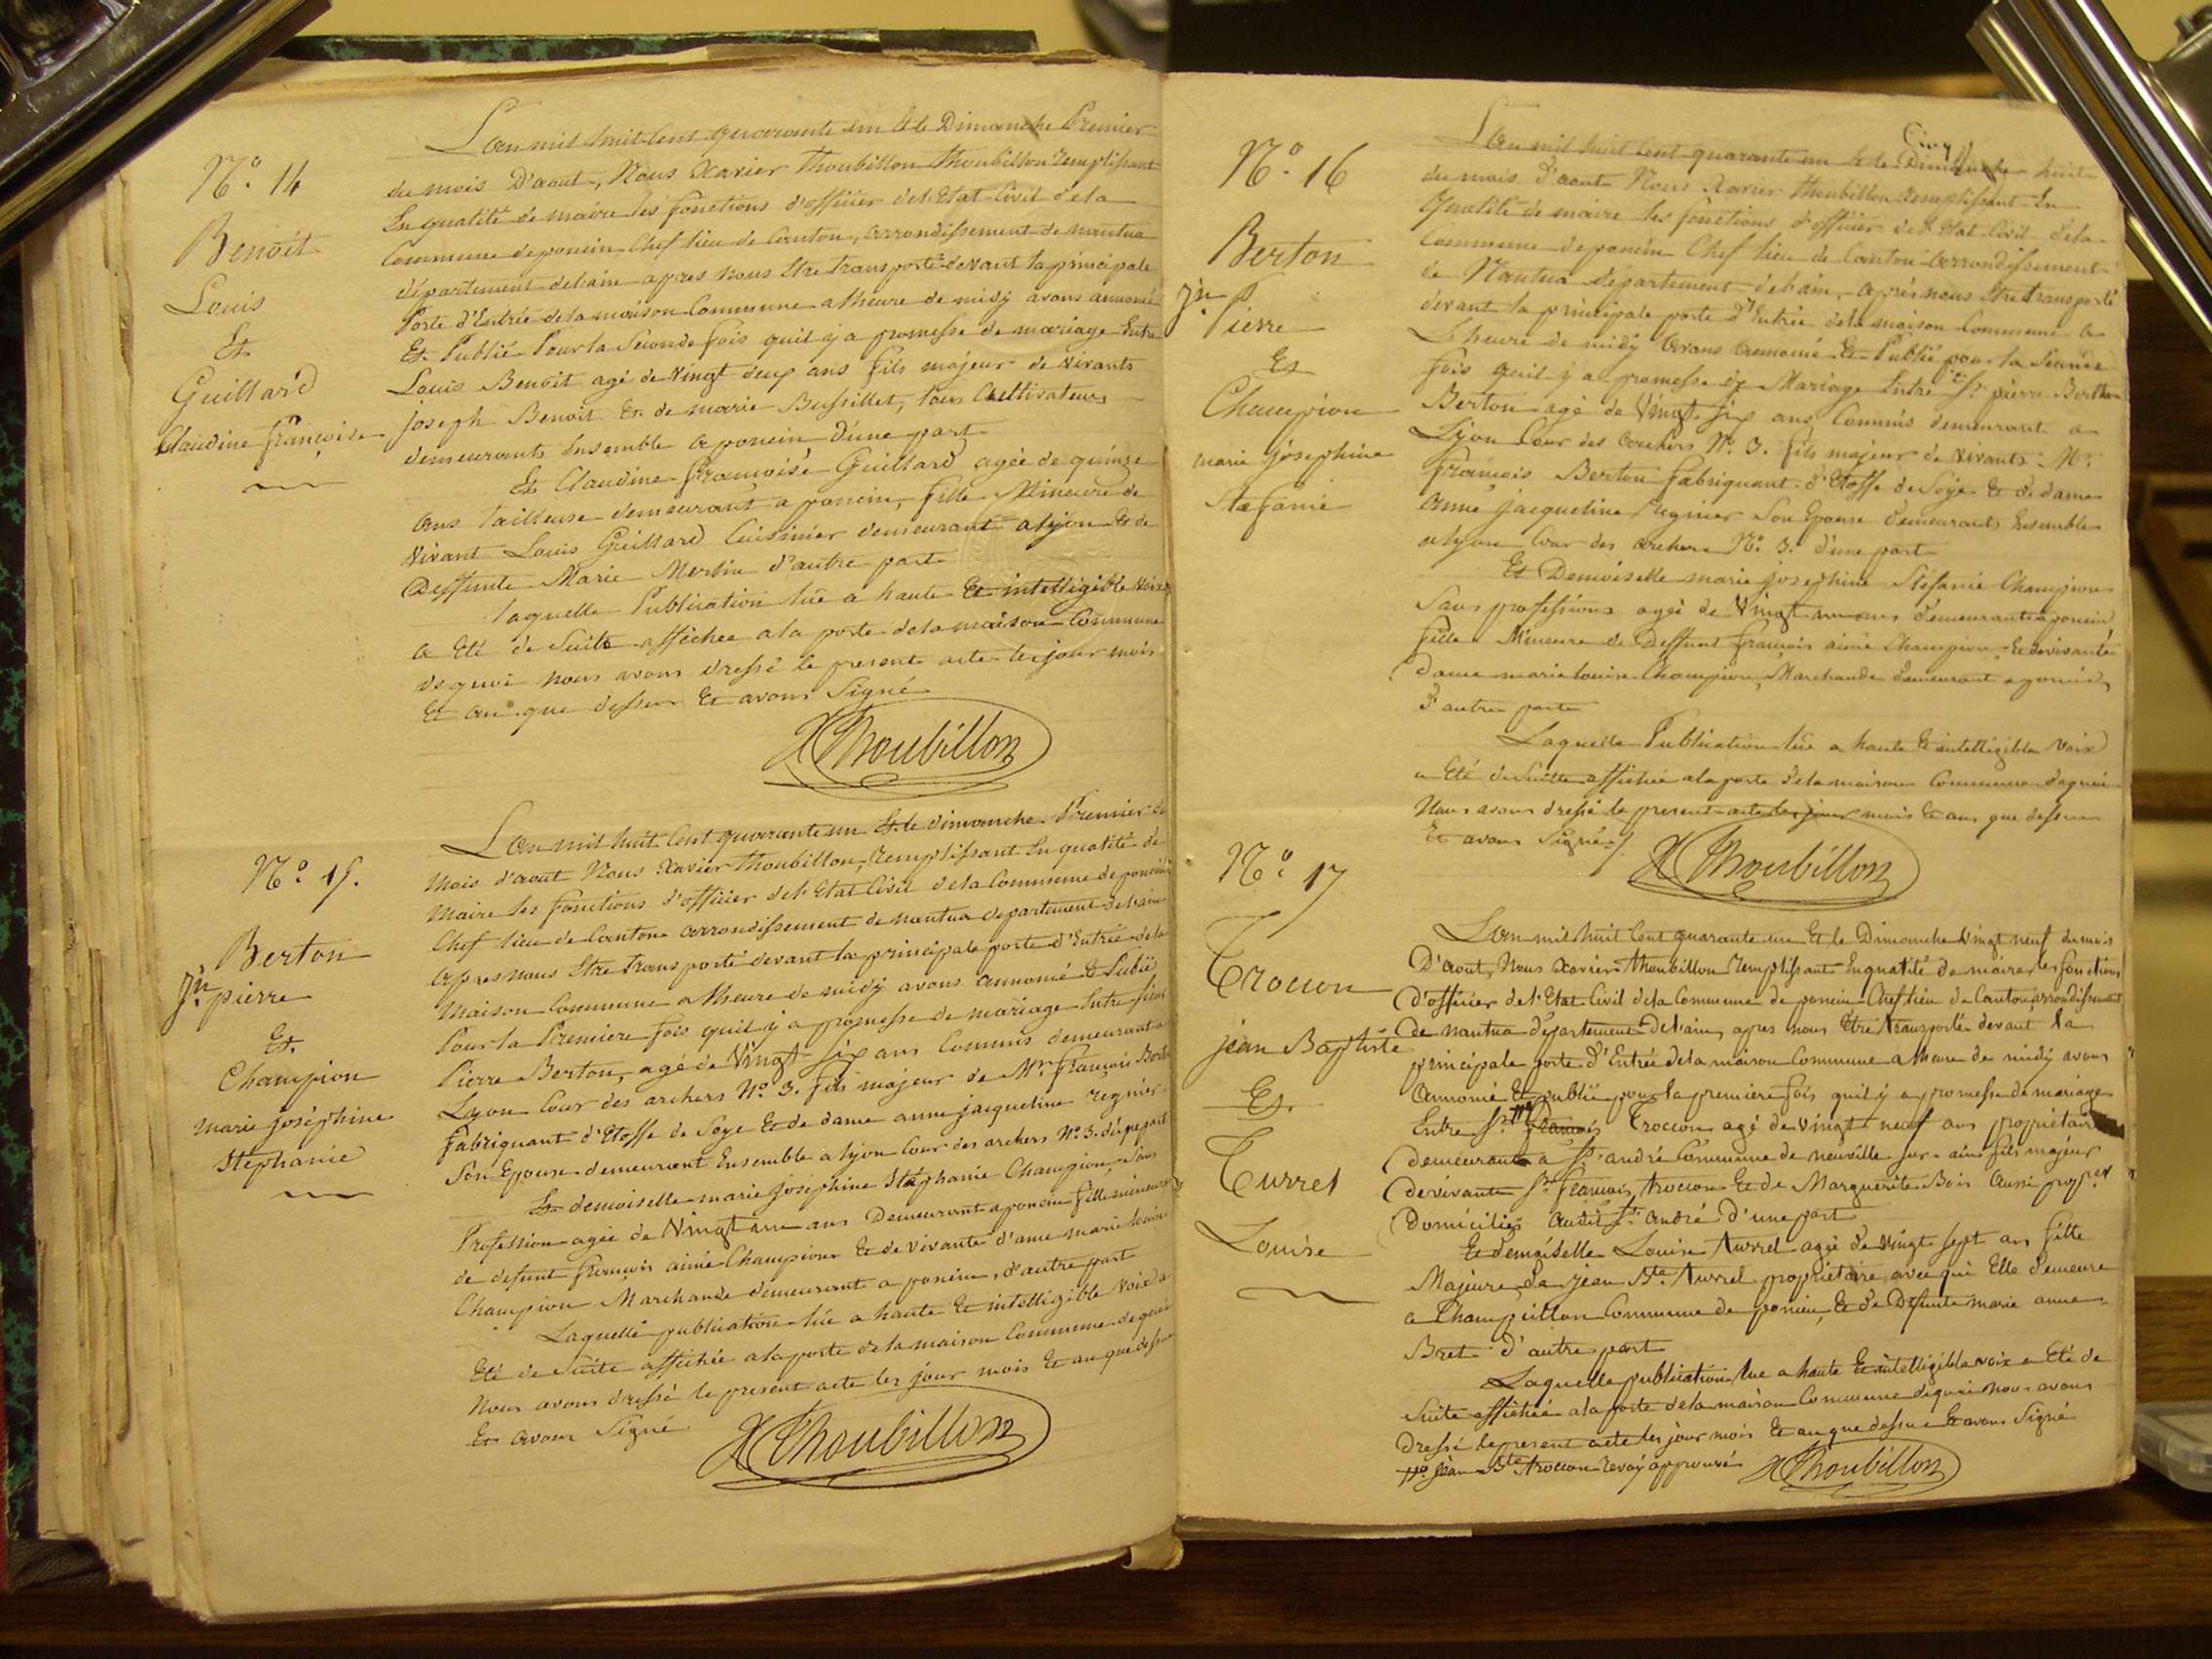 N.° 14
Benoit
Louis
Et
Guillard
Claudine françoise
L'an mil huit Cent quarante un & le Dimanche Premier
du mois D'aout, Nous Xavier Thoubillon Thoubillon remplissant
En qualité de maire les fonctions d'officier de l'Etat Civil dela
Commune de poncin, Chef lieu de Canton, arrondissement de nantua
département delain apres nous Etre transporté devant la principale
Porte d'Entrée dela maison Commune a lheure de midy avons annoncé
Et Publié Pour la Seconde fois quil y a promesse de mariage Entre
Louis Benoit agé de Vingt deux ans fils majeur de Vivants
Joseph Benoit Et de marie Bussillet, tous Cultivateurs
demeurants Ensemble a poncin d'une part
Et Claudine françoise Guillard agée de quinze
ans tailleuse demeurant a poncin, fille Mineure de
Vivant Louis Guillard Cuisinier demeurant a lyon Et de
Deffunte Marie Merlin d'autre part
laquelle Publication lüe a haute Et intelligible Voix
a Eté de Suite affichée ala porte dela maison Commune
de quoi nous avons dressé le present acte les jour mois
Et an que dessus Et avons Signé
XThoubillon
N.° 15.
Berton
Jn. pierre
Et.
Champion
marie joséphine
Stéphanie
L'an mil huit Cent quarante un Et le dimanche Premier du
Mois d'aout Nous Xavier Thoubillon, remplissant En qualité de
Maire les fonctions d'officier de l'Etat Civil dela Commune de poncin
Chef lieu de Canton arrondissement de nantua departement delain
apres nous Etre transporté devant la principale porte d'Entrée dela
Maison Commune a lheure de midy avons annoncé Et Publié
Pour la Premiere fois quil y a promesse de mariage Entre sieur
Pierre Berton, agé de Vingt-six ans Commis demeurant a
Lyon Cour des archers N.° 3. fils majeur de Mr. françois Berton
fabriquant d'Etoffe de Soye Et de dame anne jacqueline regnier
Son Epouse demeurant Ensemble a lyon Cour des archers N.° 3. d'une part
Et demoiselle marie josephine Stéphanie Champion, Sans
Profession agée de Vingt un ans Demeurant a poncin fille mineure
de defunt françois aimé Champion Et de vivante d'ame marie louise
Champion Marchande demeurant a poncin, d'autre part
Laquelle publication lüe a haute Et intelligible Voix a
Eté de Suite affichée ala porte dela maison Commune de quoi
Nous avons dressé le present acte les jour mois Et an que dessus
Et avons Signé
XThoubillon
N.° 16
Berton
Jn. Pierre
Et
Champion
marie joséphine
Stefanie
L'an mil huit Cent quarante un & le Dimanche huit
du mois d'aout Nous Xavier Thoubillon remplissant En
Qualité de maire les fonctions d'officier de l'Etat Civil dela
Commune de poncin Chef lieu de Canton arrondissement
de Nantua département delain, après nous Etre transporté
devant la principale porte d'Entrée dela maison Commune a
L'heure de midy avons annoncé Et Publié pour la Seconde
fois quil y a promesse de Mariage Entre Sr. pierre
Berton agé de Vingt Six ans, Commis demeurant a
Lyon Cour des archers N.° 3. fils majeur de Vivants Mr.
François Berton fabriquant d'Etoffe de Soye Et de dame
anne jacqueline regnier Son Epouse demeurants Ensemble
a lyon Cour des archers N.° 3. d'une part
Et Demoiselle marie josephine Stéfanie Champion
Sans professions agée de Vingt un ans demeurante a poncin
fille Mineure de Deffunt françois aimé Champion, Et de vivante
Dame marie louise Champion, Marchande demeurant a poncin,
d'autre part
Laquelle Publication lüe a haute Et intelligible Voix
a Eté de Suite affichée ala porte dela maison Commune de quoi
Nous avons dressé le present acte les jour mois Et an que dessus
Et avons Signé
XThoubillon
N.° 17
Trocon
jean Baptiste
Et.
Turrel
Louise
L'an mil huit Cent quarante un Et le Dimanche Vingt neuf du mois
D'aout, Nous Xavier Thoubillon remplissant En qualité de maire les fonctions
d'officier de l'Etat Civil dela Commune de poncin Chef lieu de Canton arrondissement
de nantua département delain, apres nous Etre transporté devant la
principale porte d'Entrée dela maison Commune a lheure de midy avons
annoncé Et publié pour la premiere fois quil y a promesse de mariage
Entre Sr. françois Trocon agé de vingt neuf ans propriétaire
demeurant a St. andré Commune de neuville sur ain fils majeur
de vivants Sr. françois trocon Et de Marguerite Bois aussi
Domiciliés audit St. andré D'une part
Et demoiselle Louise turrel agée de vingt sept ans fille
Majeure de jean Bte. turrel propriétaire avec qui Elle demeure
a Champeillon Commune de poncin, Et de Défunte marie anne
Bret d'autre part
Laquelle publication lue a haute Et intelligible voix a Eté de
Suite affichée ala porte dela maison Commune de quoi nous avons
dressé le present acte les jour mois Et an que dessus Et avons Signé
jean Bte. trocon renvoy approuvé XThoubillon